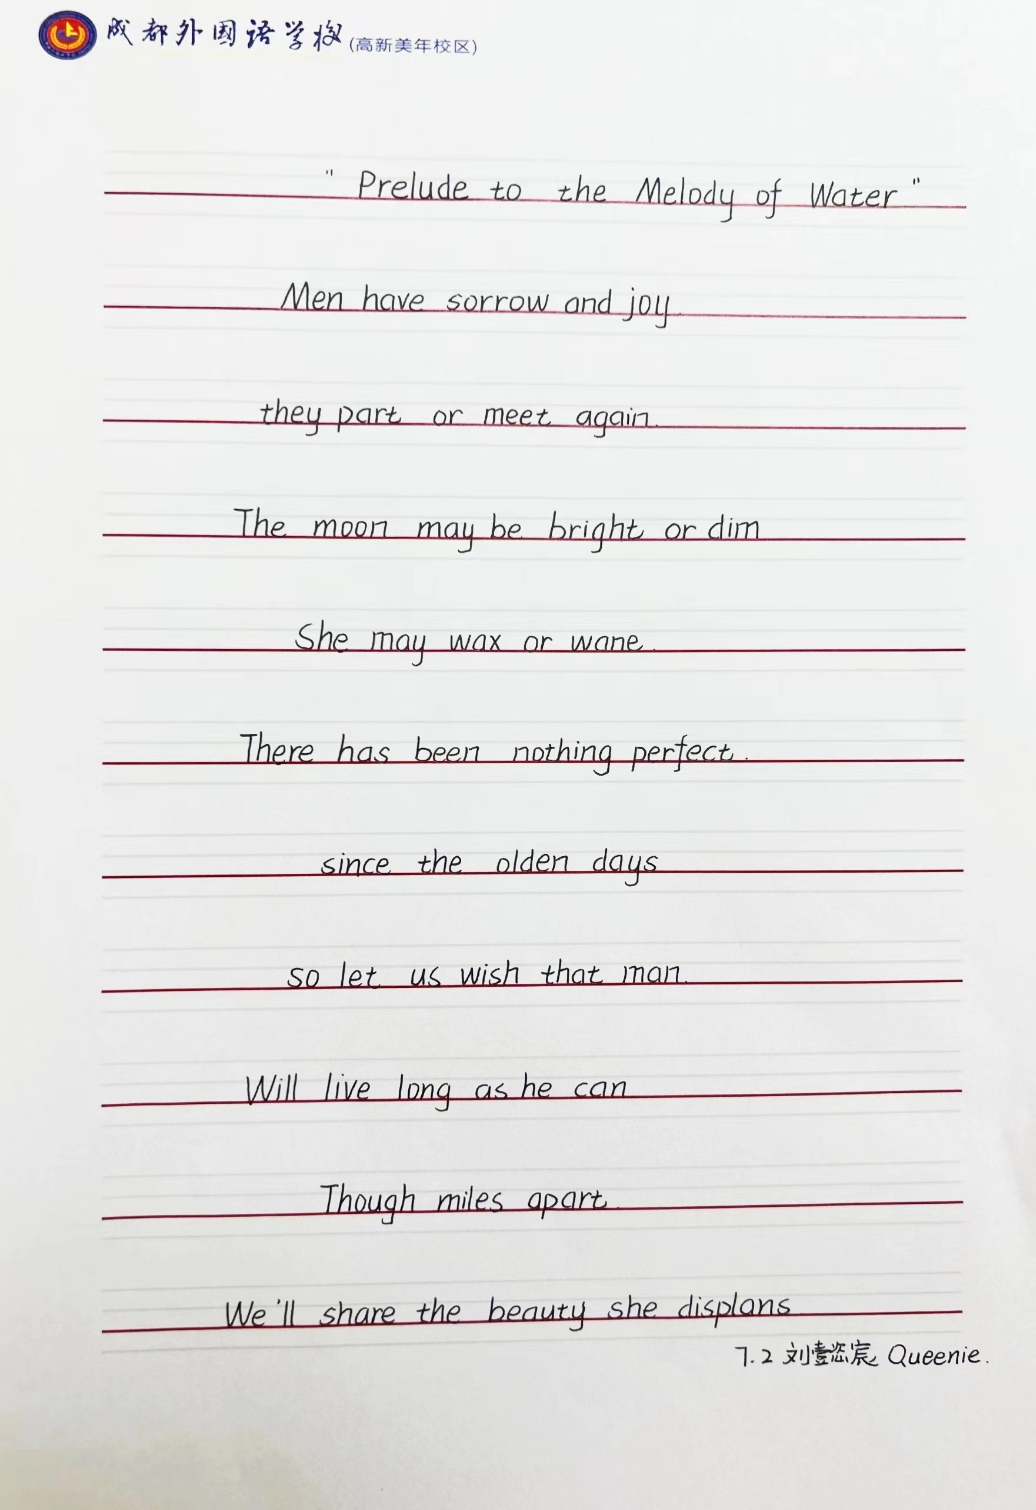 成都外国语学校(高新美年校区)
" Prelude to the Melody of Water "
Men have sorrow and joy
they part or meet again.
The moon may be bright or dim
She may wax or wane.
There has been nothing perfect.
since the olden days
so let us wish that man.
Will live long as he can
Though miles apart.
We'll share the beauty she displans
7.2 刘壹恣宸 Queenie.